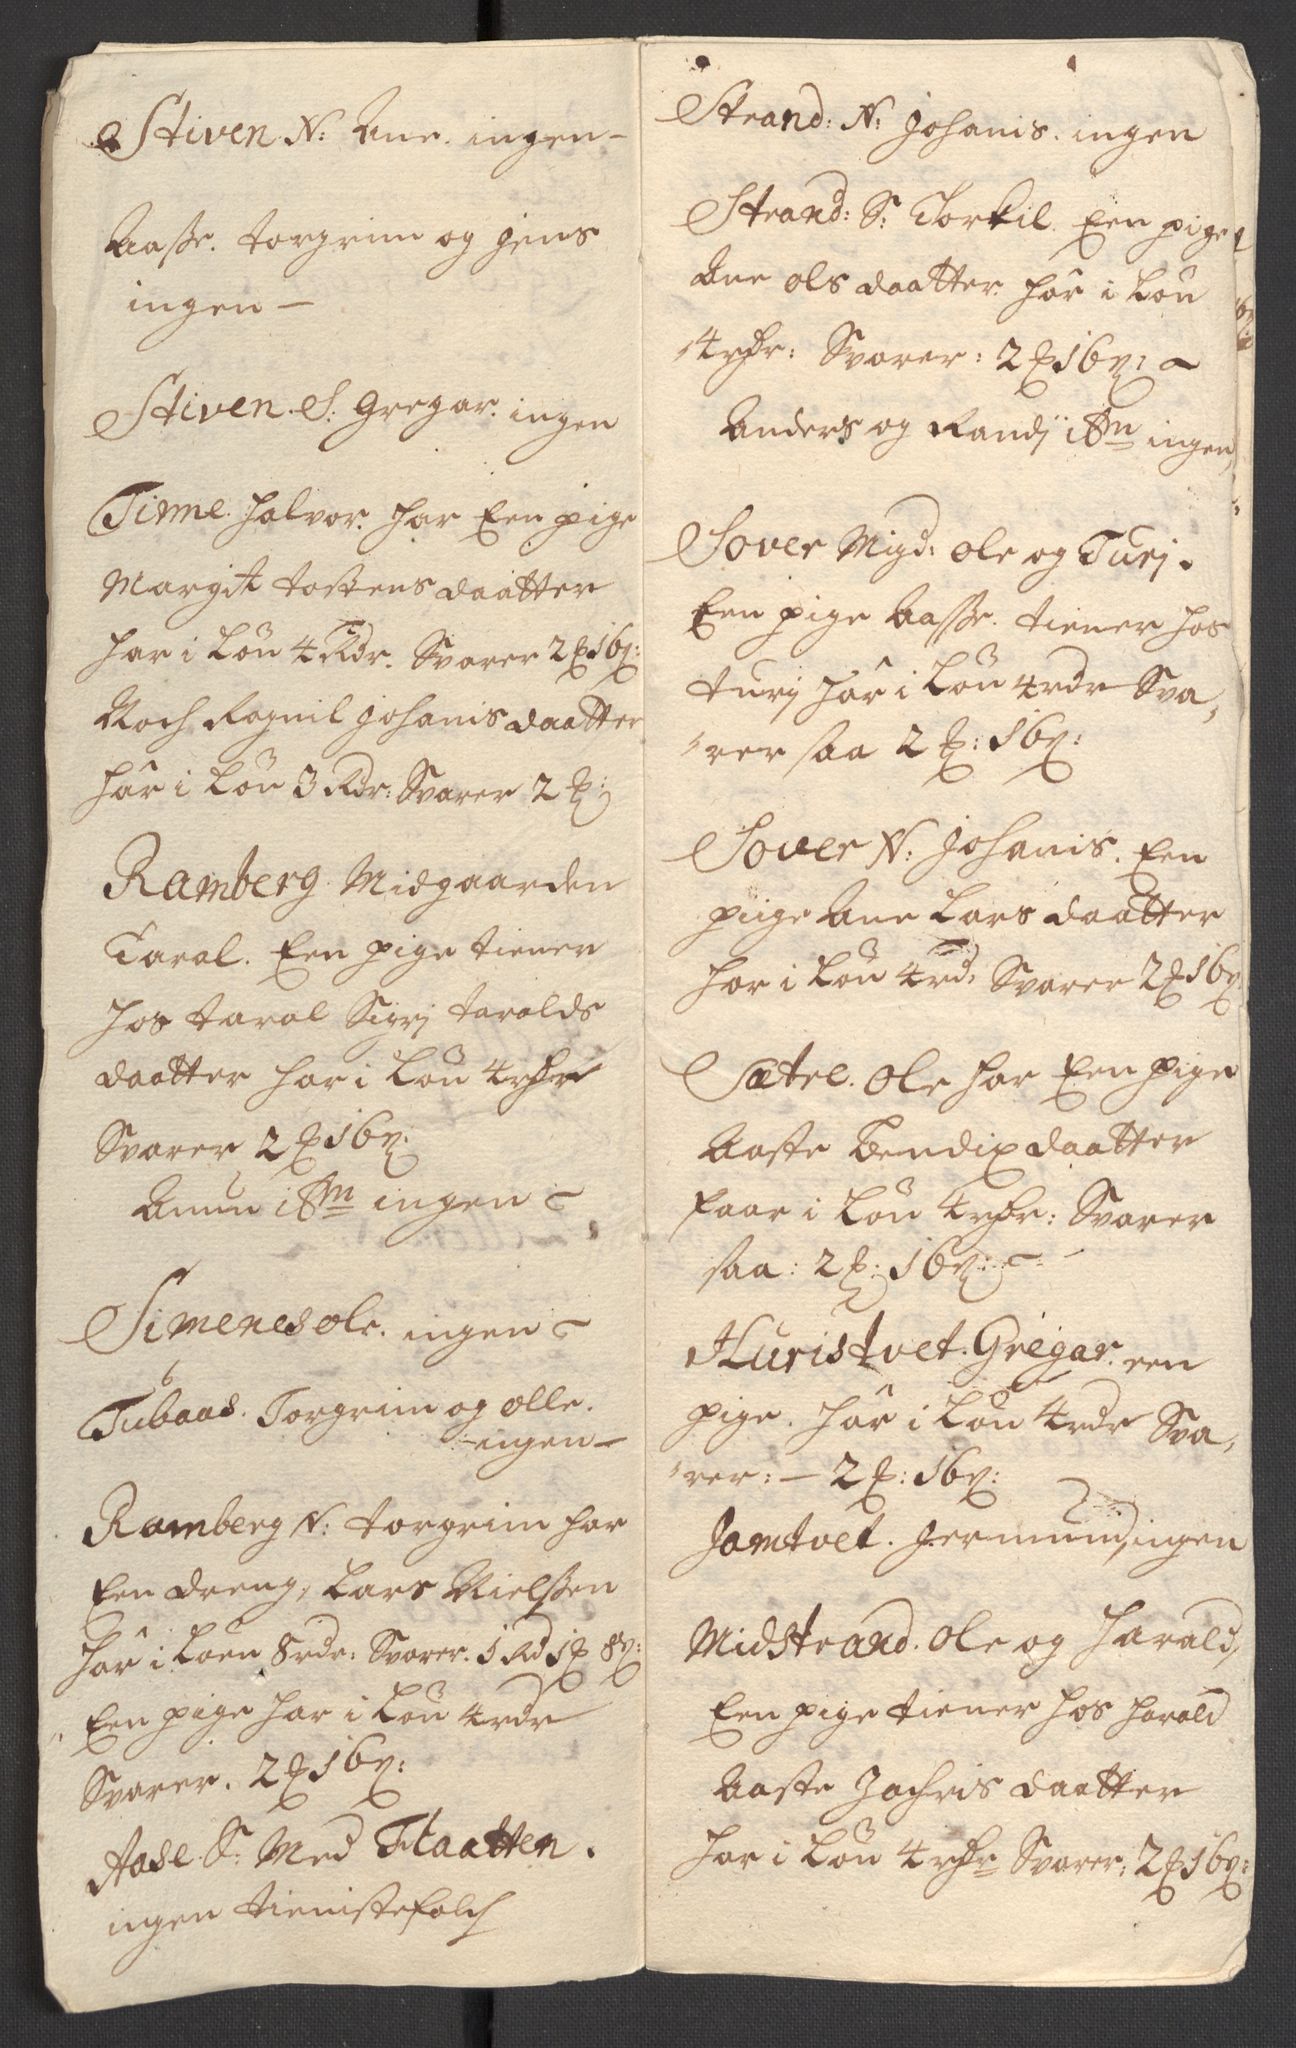 Stiven N: Ane. ingen –
Aasse. torgrim og Jens
ingen –
Stiven. S: Gregar. ingen
Tinne. halvor. har Een pige
Margit tostens daatter
har i Lön 4 Rdr. Svarer 2 ℔ 16 ß:
Noch Ragnil Johanis daatter
har i Lön 3 Rdr: Svarer 2 ℔:
Ramberg. Midgaarden
Taral. Een pige tiener
hos taral Sigrj taralds
daatter har i Lön 4 rdr
Svarer 2 ℔ 16 ß:
Amun ibm ingen –
Simenes ole. ingen –
Tubaas. Torgrim og olle.
– ingen –
Ramberg N: torgrim har
Een dreng, Lars Nielssen
har i Loen 8 rdr: Svarer. 1 Rd 1 ℔ 8 ß:
Een pige har i Lön 4 rdr
Svarer. 2 ℔ 16 ß:
Aase. S: Med Flaatten.
ingen tienistefolch
Strand: N: Johanis. ingen
Strand: S: Torkil. Een pige
Ane ols daatter har i Lön
4 rdr: Svarer: 2 ℔ 16 ß: –
Anders og Randj ibm ingen
Sover Migd: ole og Turj.
Een pige Aasse. tiener hos
turj har i Lön 4 rdr Sva,
"rer saa 2 ℔: 16 ß:
Sover N: Johanis. Een
piige Ane Lars daatter
har i Lön 4 rd: Svarer 2 ℔ 16 ß
Sætre. ole har Een pige
Aaste Bendix daatter
faar i Lön 4 rdr: Svarer
saa: 2 ℔: 16 ß: –
Huristvet. Gregar. een
pige. har i Lön 4 rdr Sva,
"rer: – 2 ℔: 16 ß:
Jamtvet. Jermund, ingen
Midstrand. ole og harald,
Een pige tiener hos harald
Aaste Jachris daatter
har i Lön 4 rdr Svarer: 2 ℔ 16 ß: